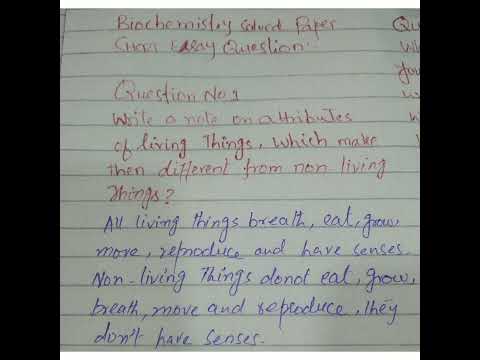 Biochemistry solved Paper
Short Essay Question:
Question No 1
Write a note on attributes
of living Things, which make
then different from non living
Things?
All living things breath, eat, grow
move, reproduce and have senses.
Non-living Things donot eat, grow,
breath, move and reproduce, they
don't have senses.
Qu
Wi
you